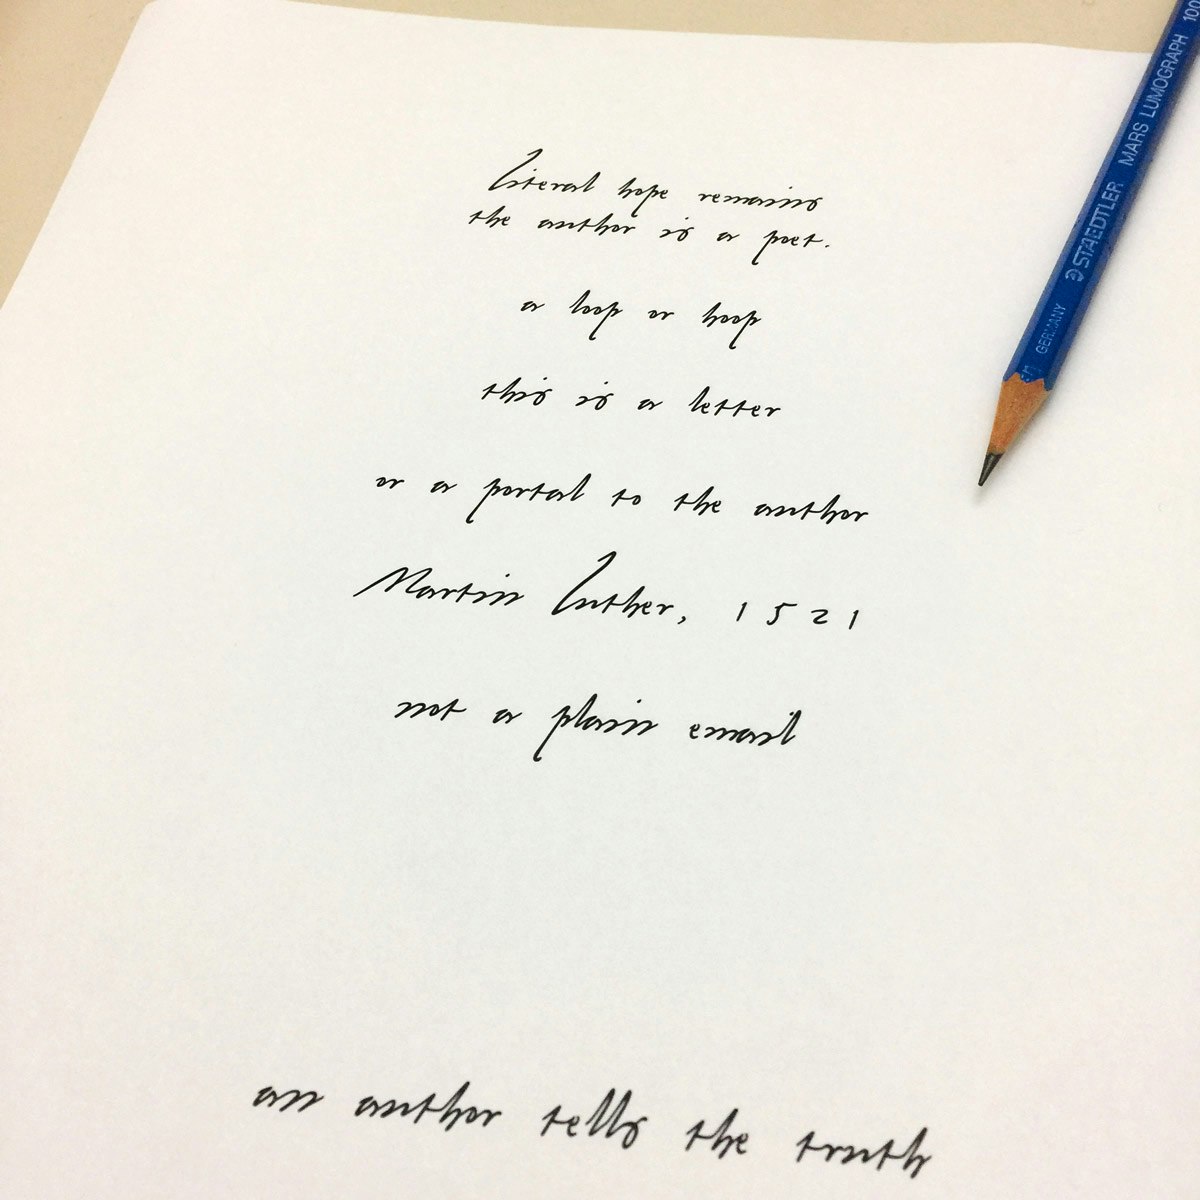 Literal hope remains
the author is a poet.
a loop or hoop
this is a letter
or a portal to the author
Martin Luther, 1521
not a plain email
an author tells the truth
STAEDTLER MARS LUMOGRAPH 100
GERMANY